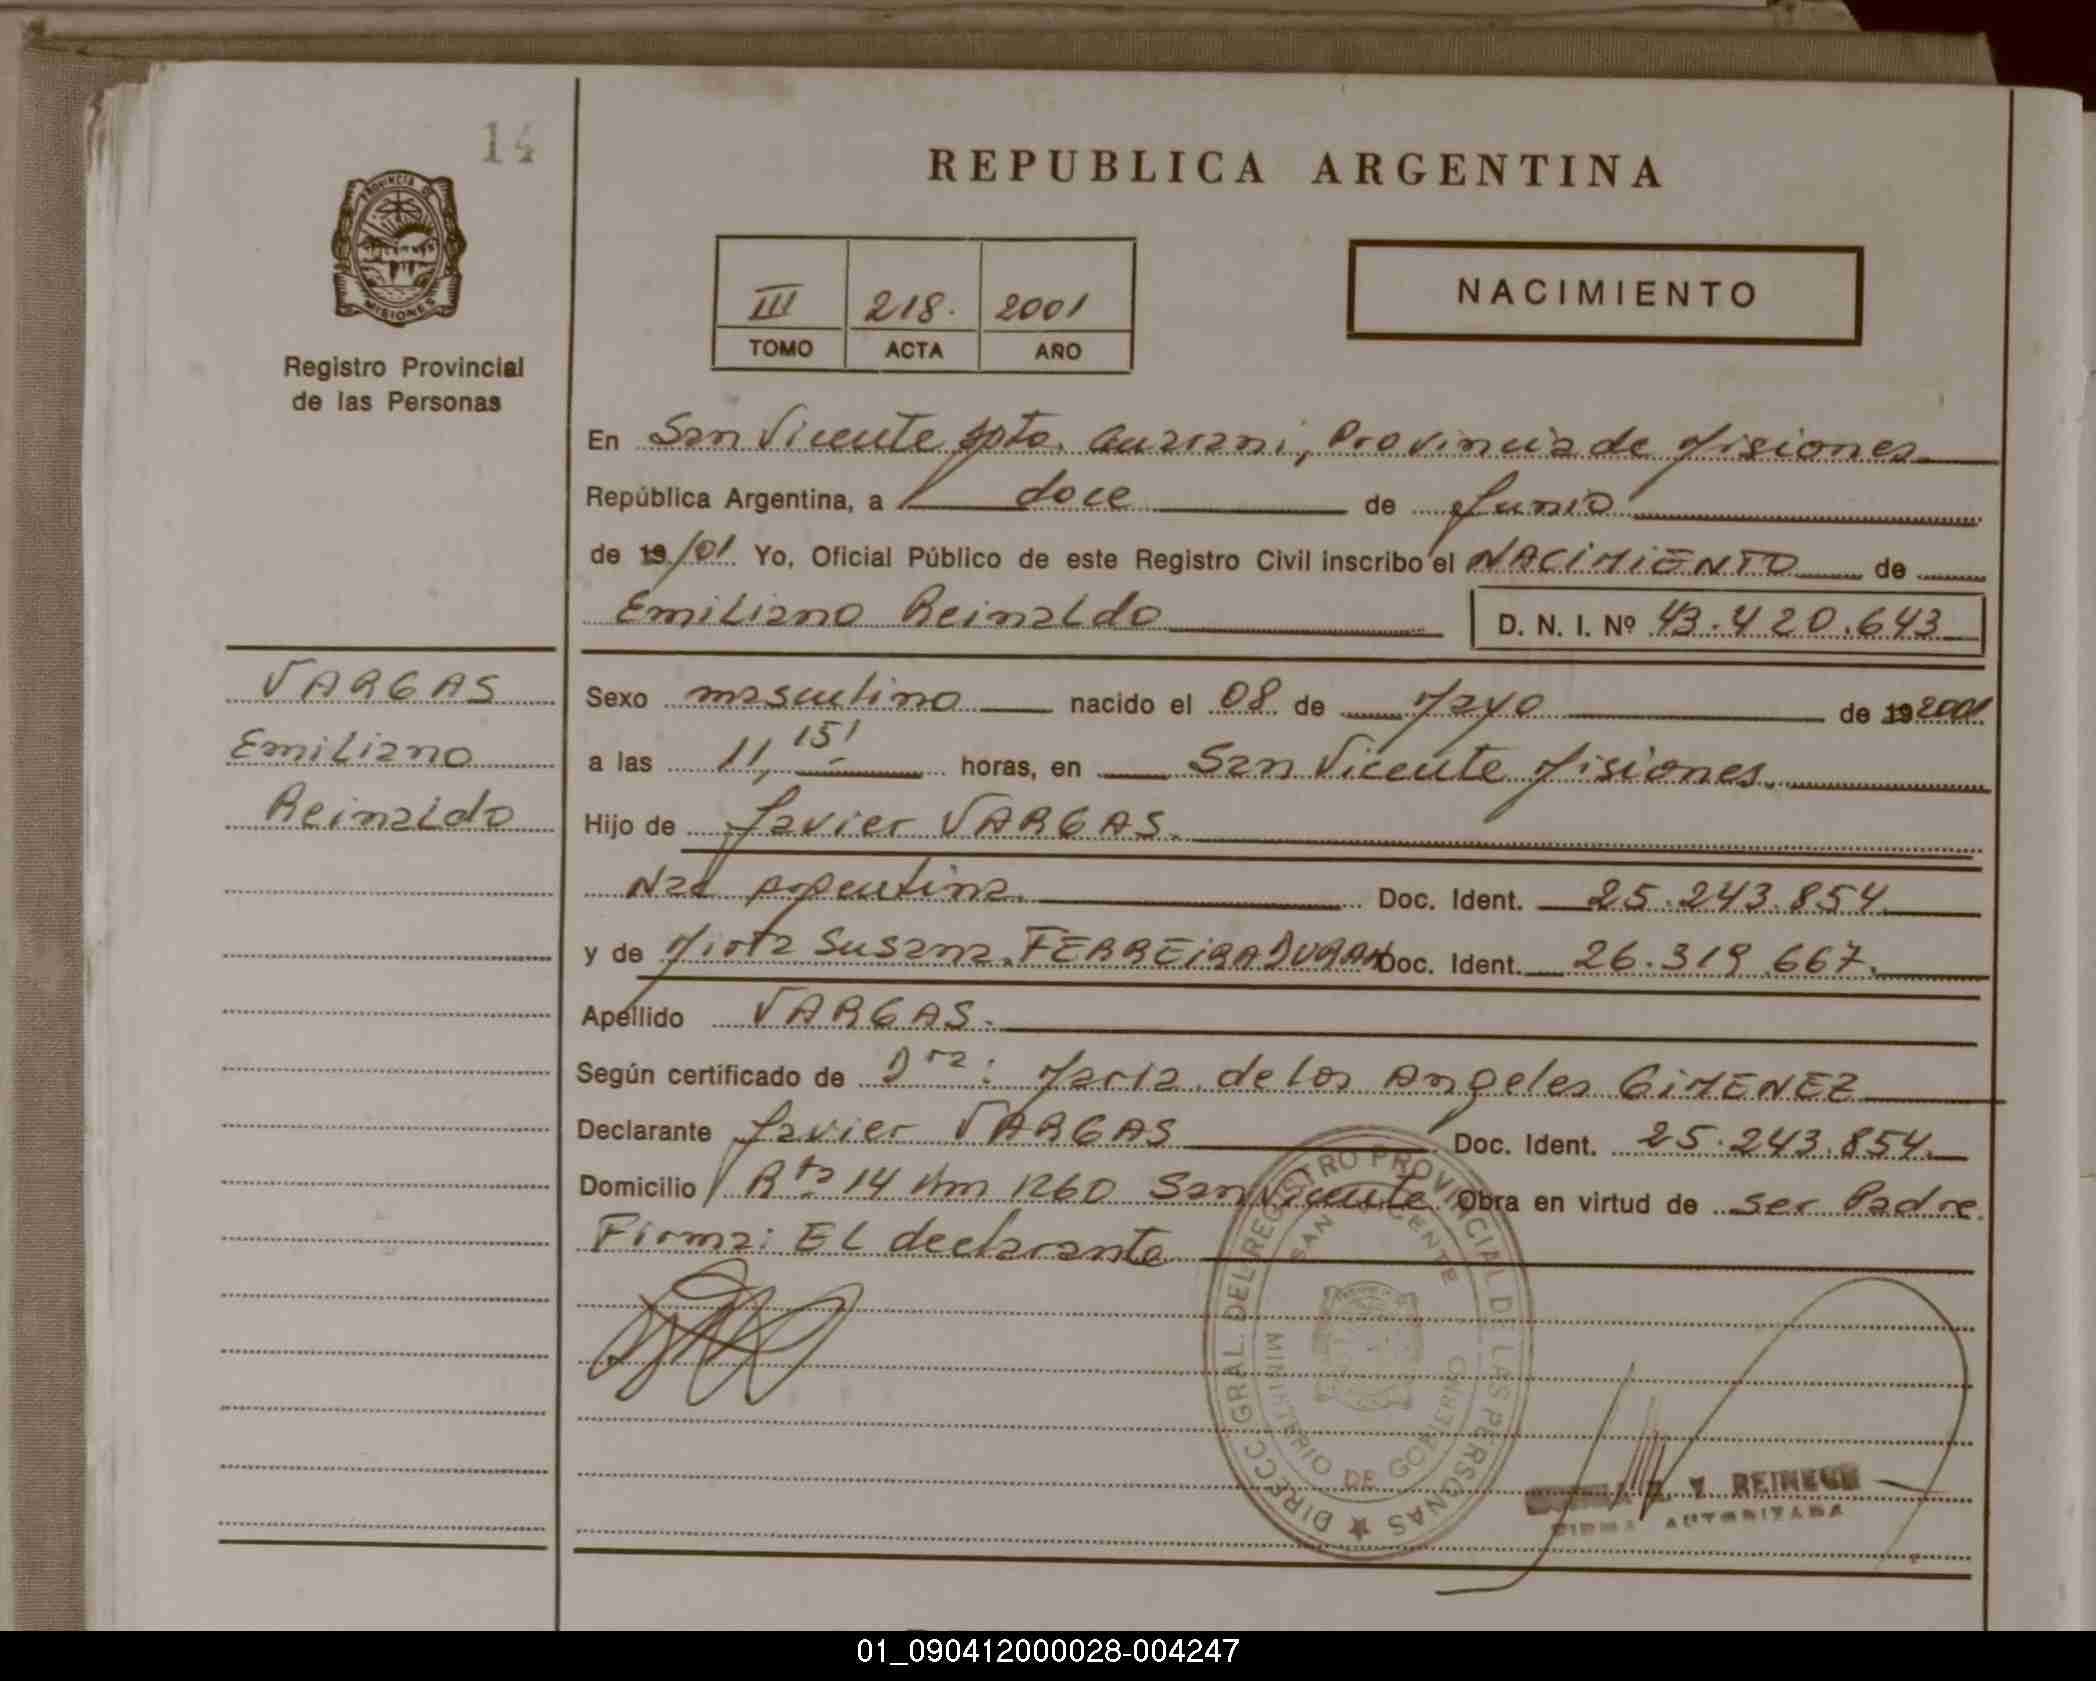 14
PROVINCIA DE
MISIONES
Registro Provincial
de las Personas
REPUBLICA ARGENTINA
III 218. 2001
TOMO ACTA AÑO
NACIMIENTO
En San Vicente Dpto. Guarani, Provincia de Misiones
República Argentina, a doce de Junio
de 19/01 Yo, Oficial Público de este Registro Civil inscribo el NACIMIENTO de
Emiliano Reinaldo D. N. I. Nº 43.420.643
VARGAS
Emiliano
Reinaldo
Sexo masculino nacido el 08 de Mayo de 19 2001
a las 11,15' horas, en San Vicente Misiones.
Hijo de Javier VARGAS.
Nac Argentina. Doc. Ident. 25.243.854
y de Mirta Susana FERREIRA DURAN Doc. Ident. 26.319.667.
Apellido VARGAS.
Según certificado de Dra: Maria de los Angeles GIMENEZ
Declarante Javier VARGAS Doc. Ident. 25.243.854.
Domicilio Rta 14 Km 1260 San Vicente Obra en virtud de ser Padre.
Firma: El declarante
DIRECC. GRAL. DEL REGISTRO PROVINCIAL DE LAS PERSONAS
SAN VICENTE
MINISTERIO DE GOBIERNO
FIRMA AUTORIZADA
01_090412000028-004247